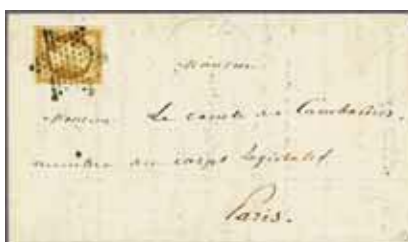 Monsieur
Monsieur Le comte de Cambacérès.
membre du corps législatif
Paris.